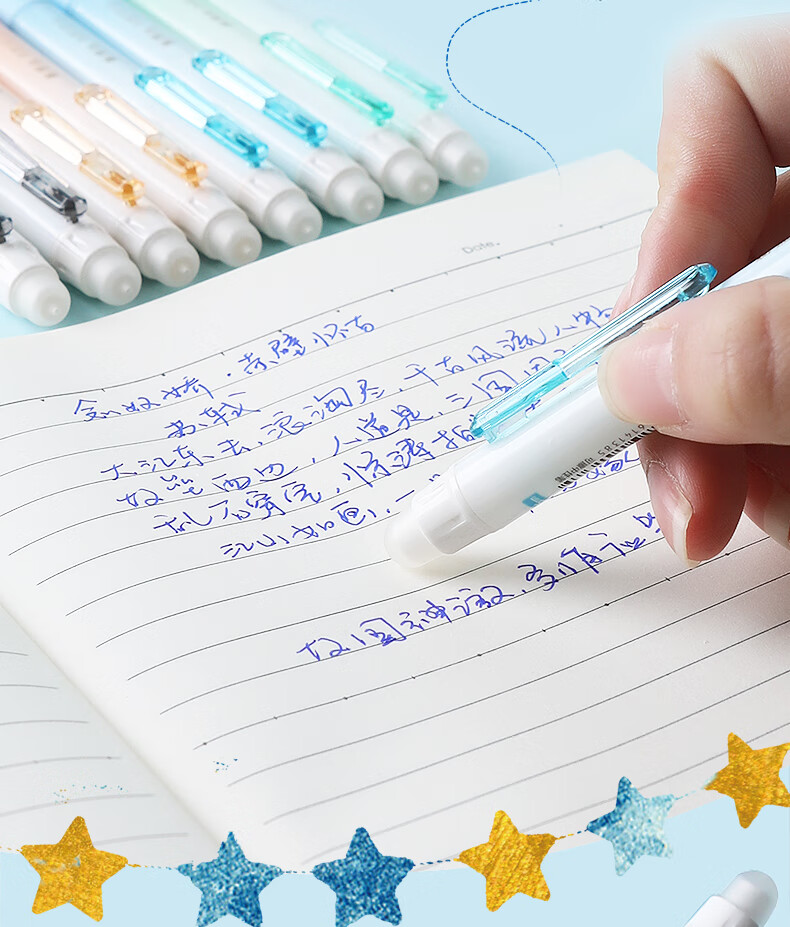 Date.
念奴娇·赤壁怀古
苏轼
大江东去,浪淘尽,千古风流人物
故垒西边,人道是,三国周
乱石穿空,惊涛拍
江山如画,一
故国神游,多情应笑